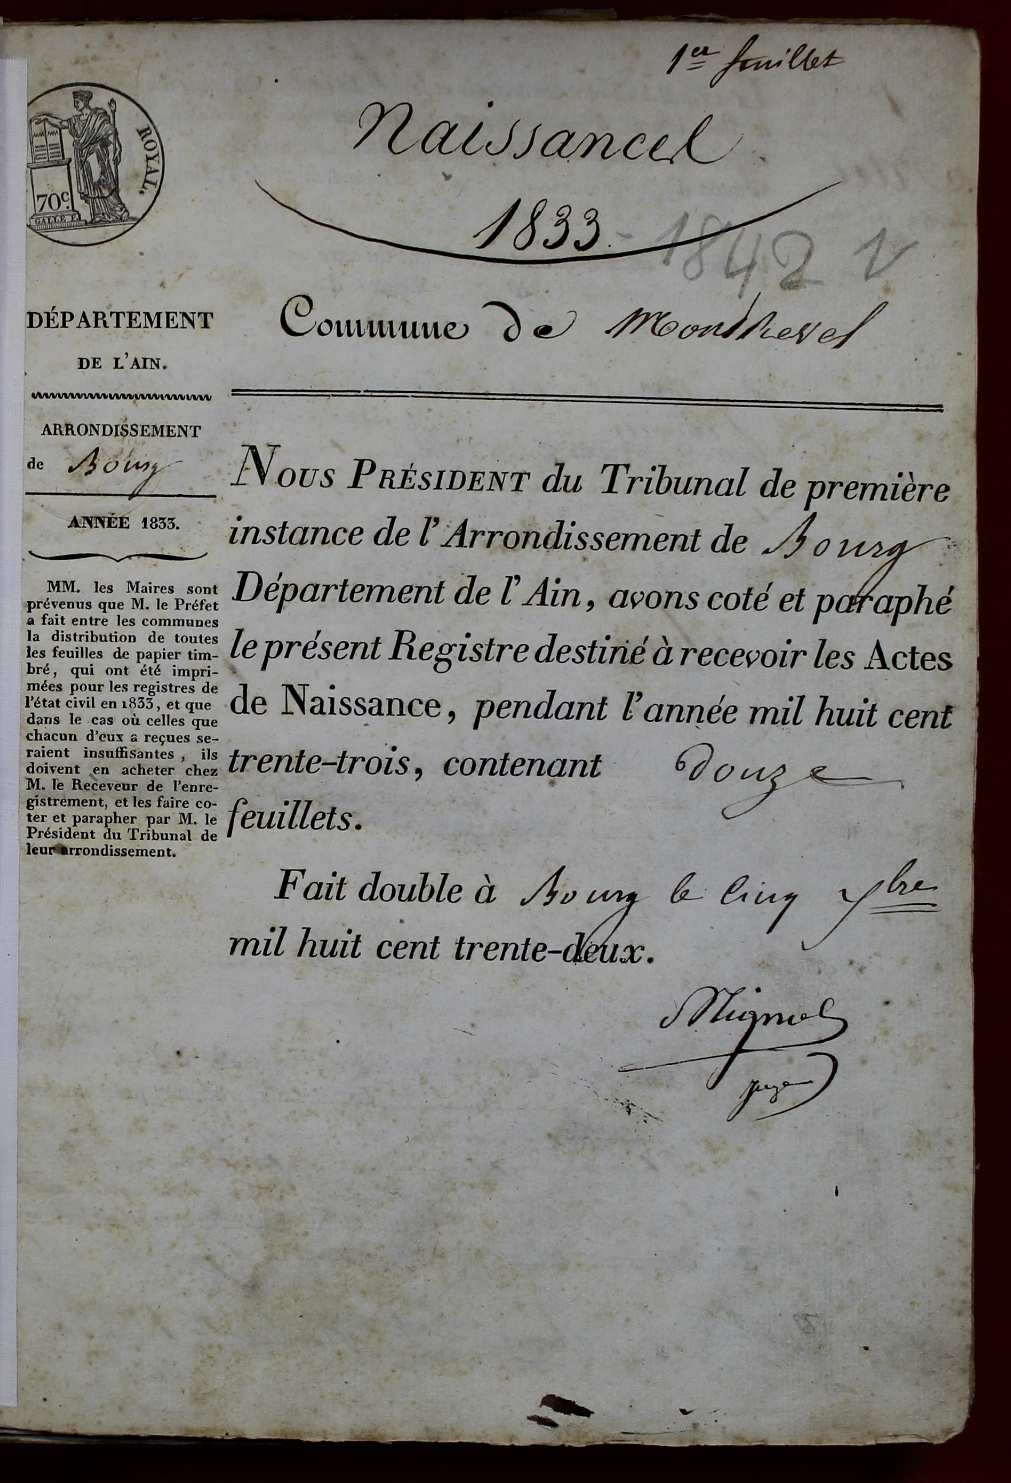 1er feuillet
Naissances
1833 - 1842 V
ROYAL.
70c.
GALLE F.
Commune de Montrevel
DÉPARTEMENT
DE L'AIN.
ARRONDISSEMENT
de Bourg
ANNÉE 1833.
MM. les Maires sont
prévenus que M. le Préfet
a fait entre les communes
la distribution de toutes
les feuilles de papier tim-
bré, qui ont été impri-
mées pour les registres de
l'état civil en 1833, et que
dans le cas où celles que
chacun d'eux a reçues se-
raient insuffisantes, ils
doivent en acheter chez
M. le Receveur de l'enre-
gistrement, et les faire co-
ter et parapher par M. le
Président du Tribunal de
leur arrondissement.
NOUS PRÉSIDENT du Tribunal de première
instance de l'Arrondissement de Bourg
Département de l'Ain, avons coté et paraphé
le présent Registre destiné à recevoir les Actes
de Naissance, pendant l'année mil huit cent
trente-trois, contenant douze
feuillets.
Fait double à Bourg le cinq Xbre
mil huit cent trente-deux.
juge